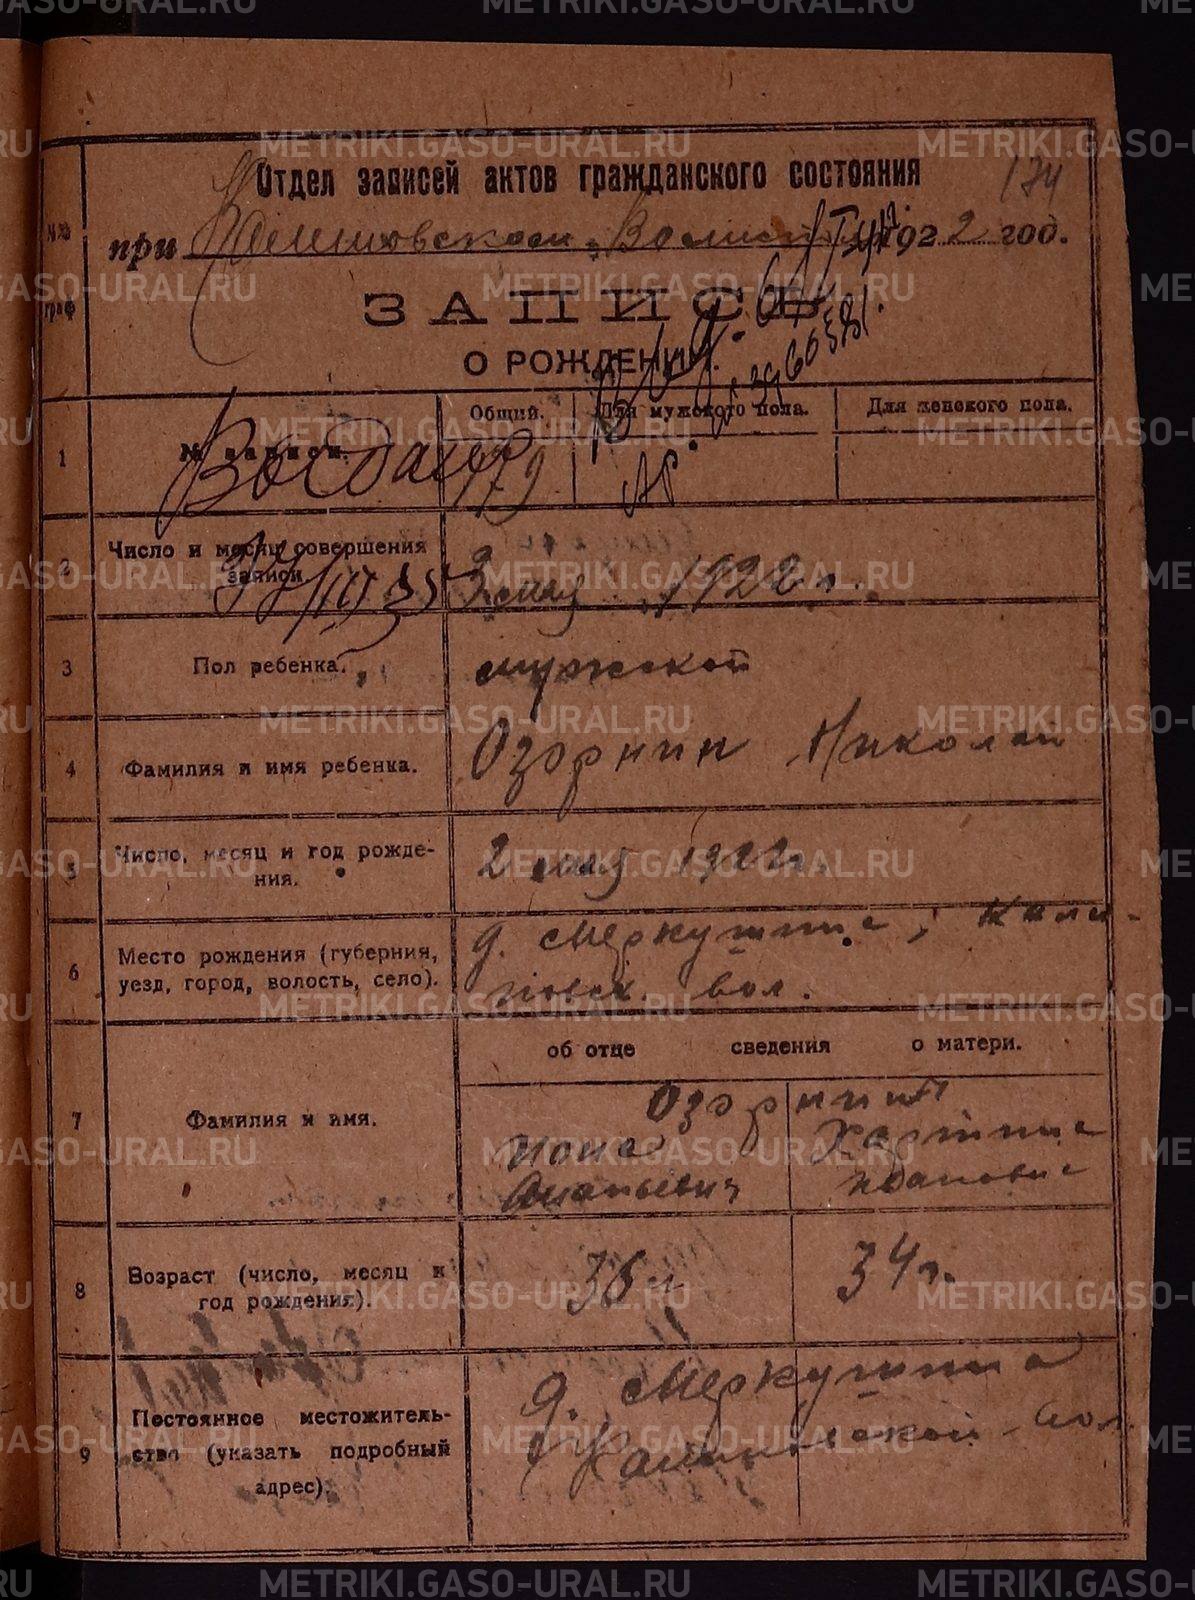 134
Отдел записей актов гражданского состояния
№№ граф
при 1922 год.
ЗАПИСЬ
О РОЖДЕНИИ.
1 № записи. Общий. Для мужского пола. Для женского пола.
179
Выдано
2 Число и месяц совершения записи 3 мая 1922 г.
3 Пол ребенка. мужской
4 Фамилия и имя ребенка. Озорнин Николай
5 Число, месяц и год рожде-
ния. 2 мая 1922 г.
6 Место рождения (губерния, д. Меркушина,
уезд, город, волость, село). вол.
об отце сведения о матери.
7 Фамилия и имя. Озорнин
Иона Харитина
Ананьевич Ивановна
8 Возраст (число, месяц и год рождения). 36 л 34 г.
9 Постоянное местожитель- д. Меркушина
ство (указать подробный вол.
адрес).
METRIKI.GASO-URAL.RU